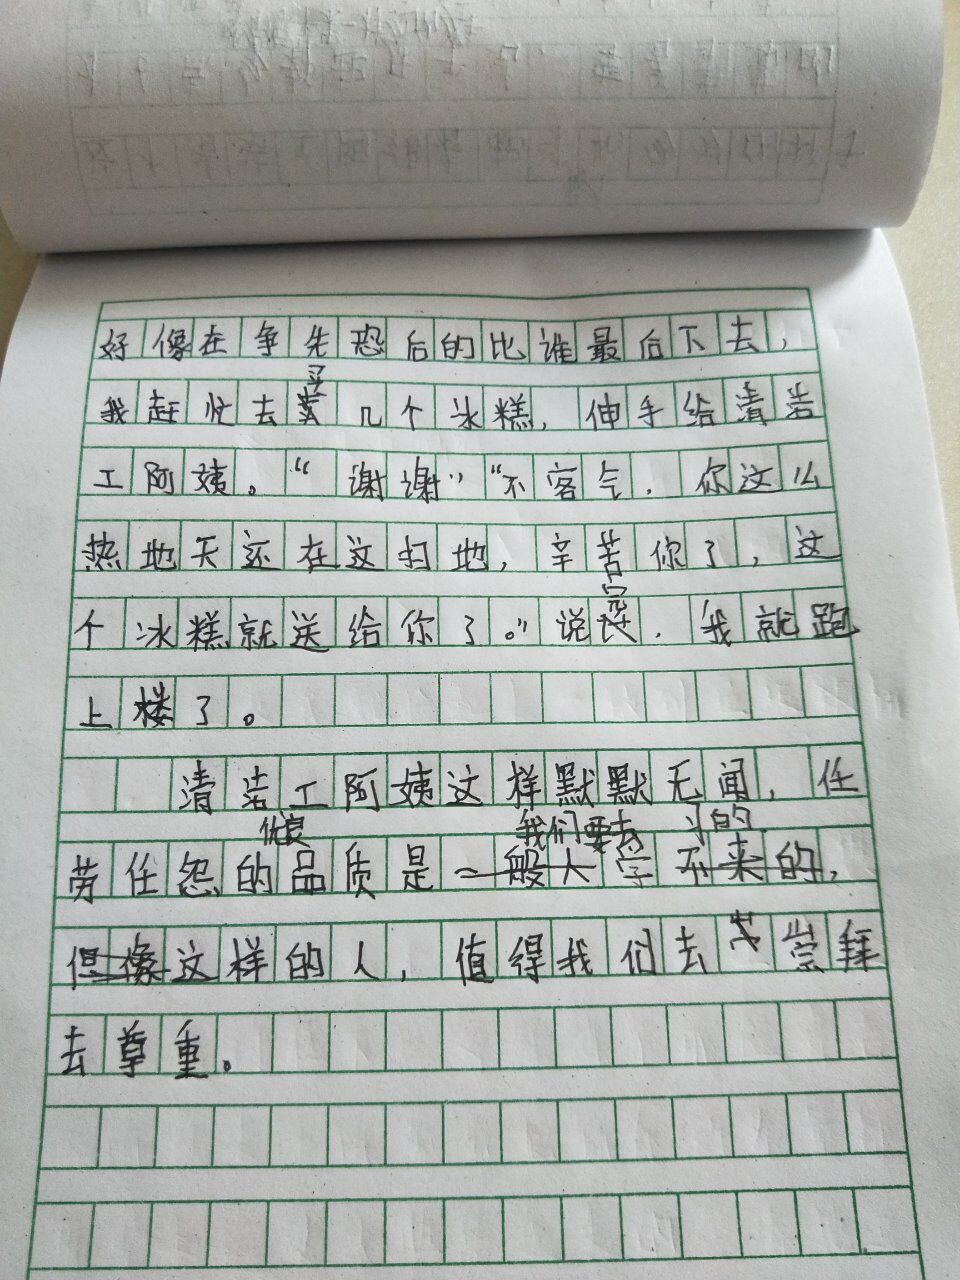 好像在争先恐后的比谁最后下去，
买
我赶忙去卖几个冰糕，伸手给清洁
工阿姨。“谢谢”“不客气，你这么
热地天还在这扫地，辛苦你了，这
完
个冰糕就送给你了。”说，我就跑
上楼了。
清洁工阿姨这样默默无闻，任
优良 我们要去 习的
劳任怨的品质是一般人学不来的，
但像这样的人，值得我们去崇拜
去尊重。